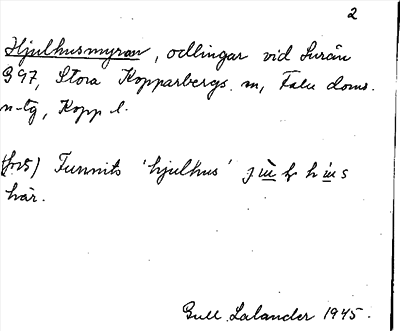 2
Hjulhusmyran, odlingar vid Lurån
G 97, Stora Kopparbergs sn, Falu doms.
n-tg, Kopp l.
Funnits 'hjulhus'
här.
Gull. Lalander 1945.